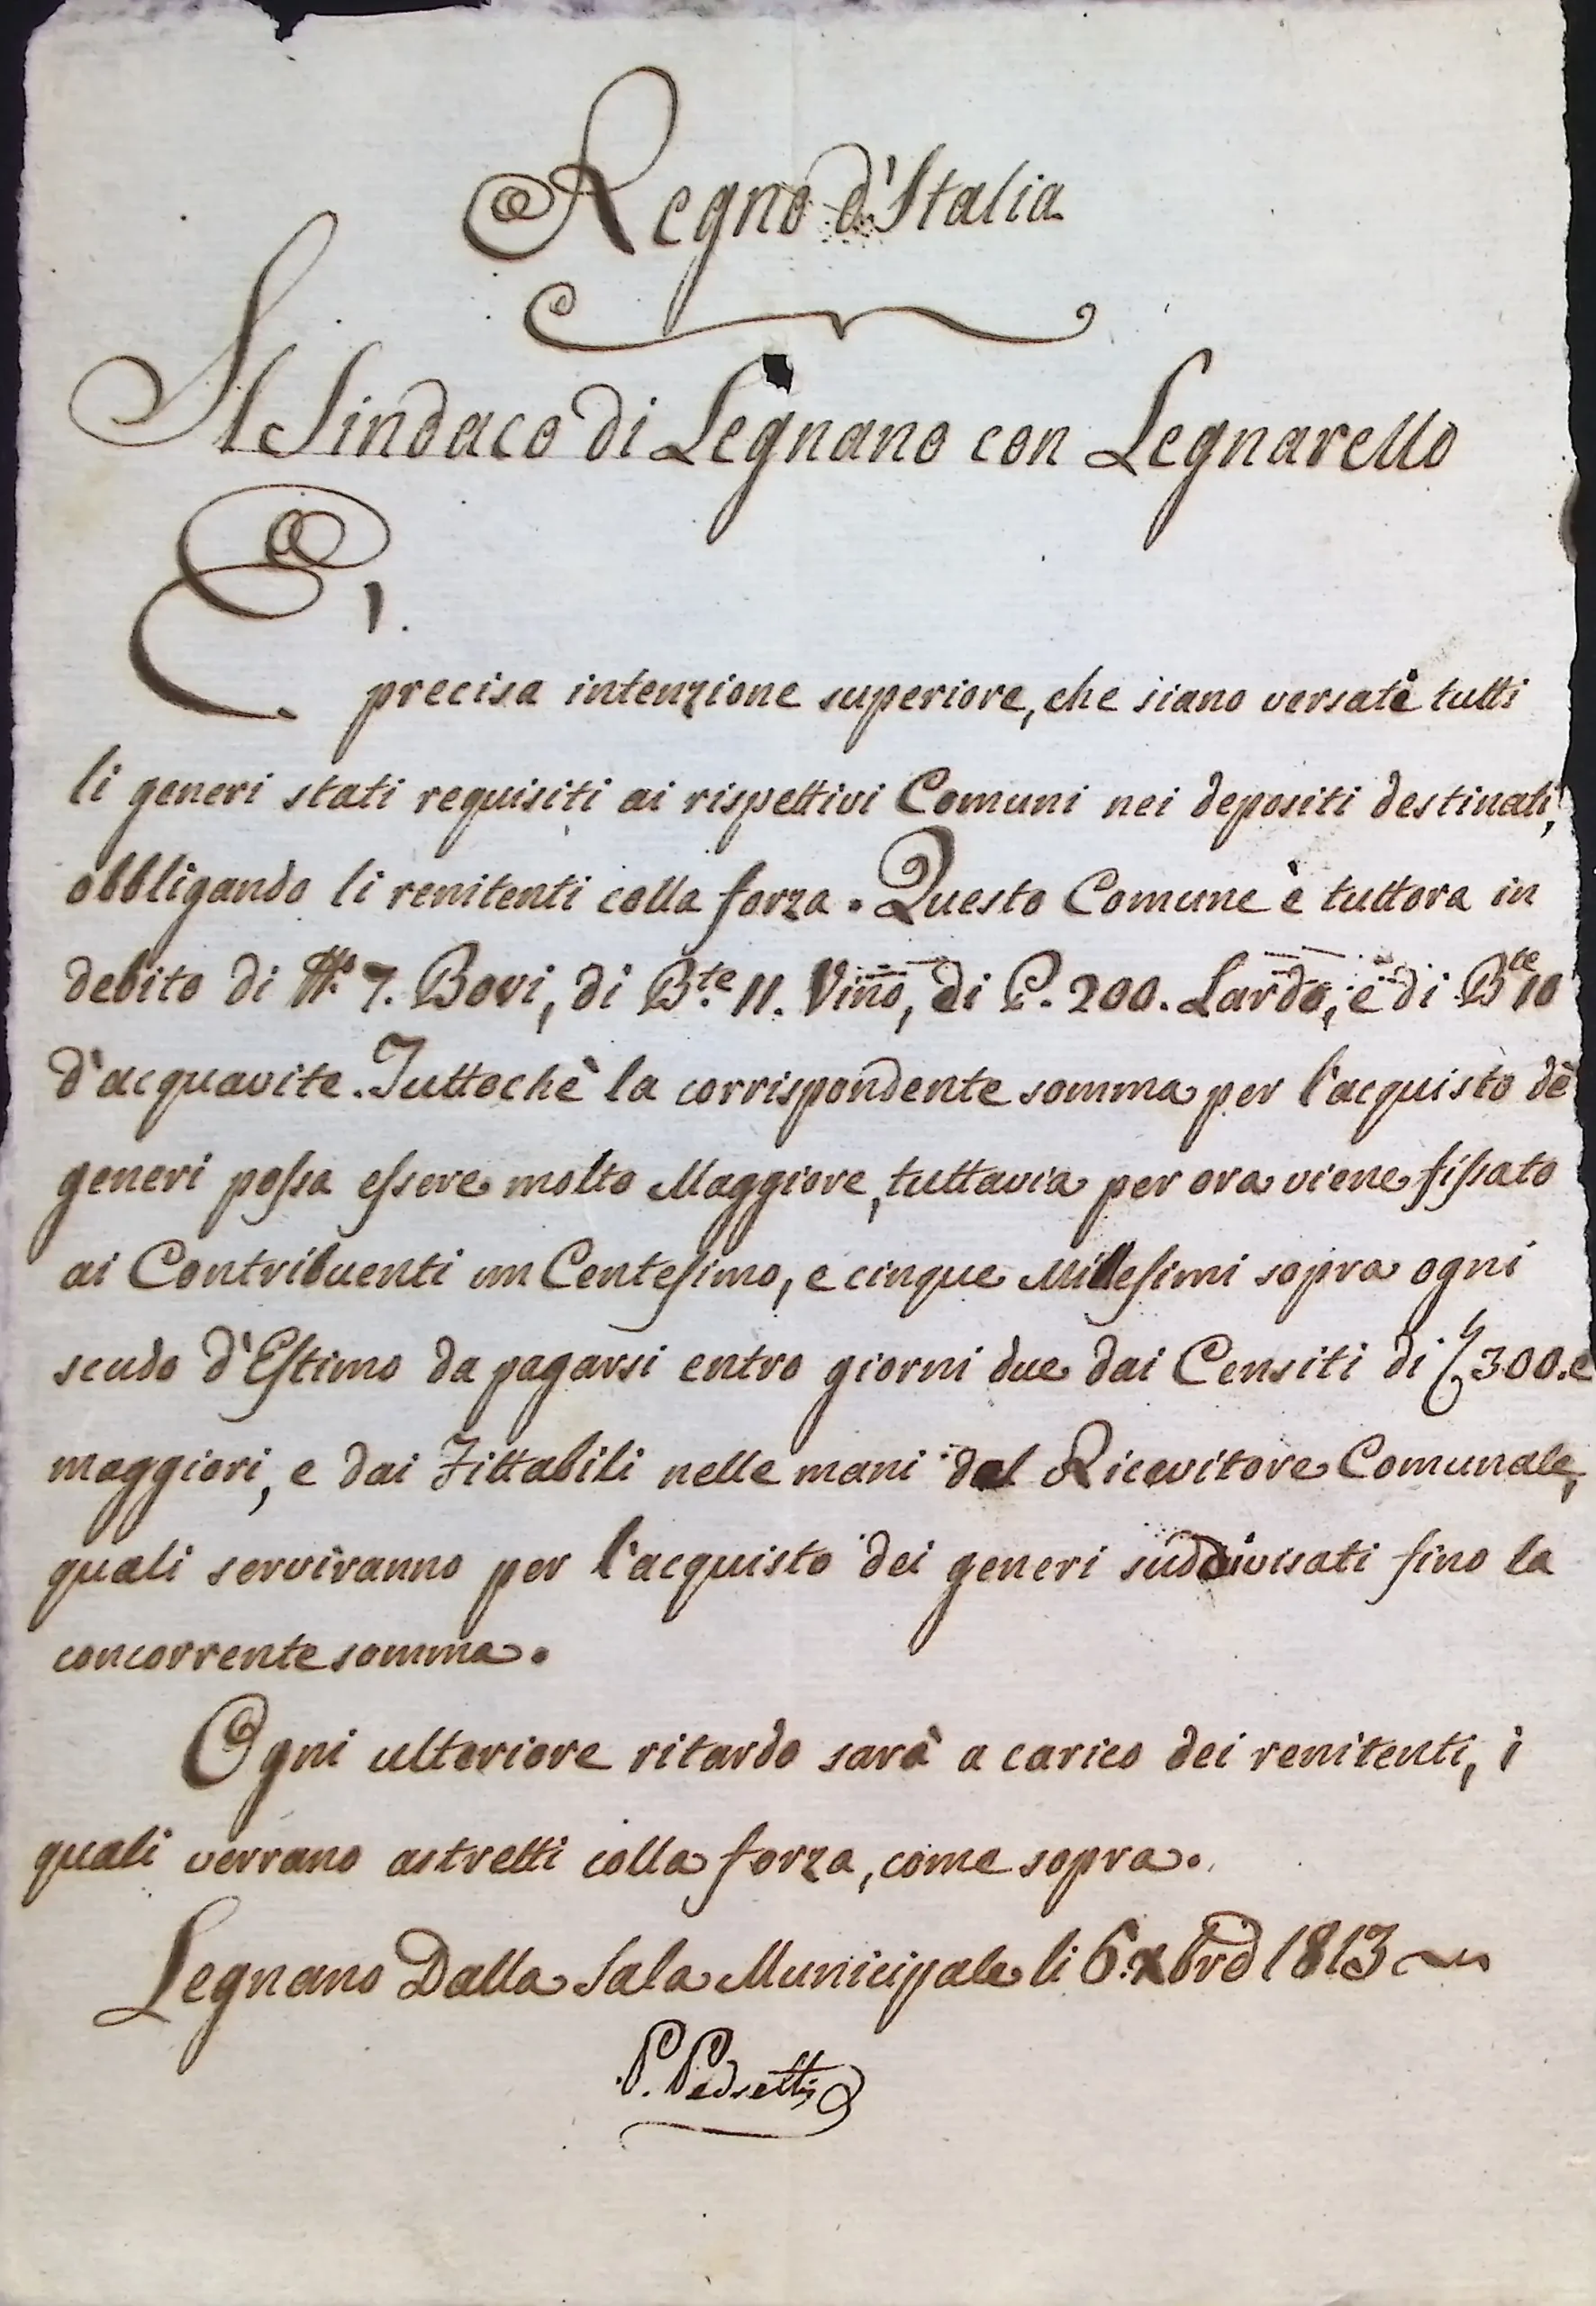 Regno d'Italia
Il Sindaco di Legnano con Legnarello
E'
precisa intenzione superiore, che siano versati tutti
li generi stati requisiti ai rispettivi Comuni nei depositi destinati,
obbligando li renitenti colla forza. Questo Comune è tuttora in
debito di N.° 7. Bovi, di B.te 11. Vino, di P. 200. Lardo, e di B.te 10
d'acquavite. Tuttochè la corrispondente somma per l'acquisto dè
generi possa essere molto Maggiore, tuttavia per ora viene fissato
ai Contribuenti un Centesimo, e cinque Millesimi sopra ogni
scudo d'Estimo da pagarsi entro giorni due dai Censiti di 300. e
maggiori, e dai Fittabili nelle mani del Ricevitore Comunale,
quali serviranno per l'acquisto dei generi suddivisati fino la
concorrente somma.
Ogni ulteriore ritardo sarà a carico dei renitenti, i
quali verrano astretti colla forza, come sopra.
Legnano Dalla Sala Municipale li 6. xbre 1813
P.